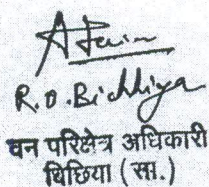 R.O. Bichhiya
वन परिक्षेत्र अधिकारी
बिछिया (सा.)